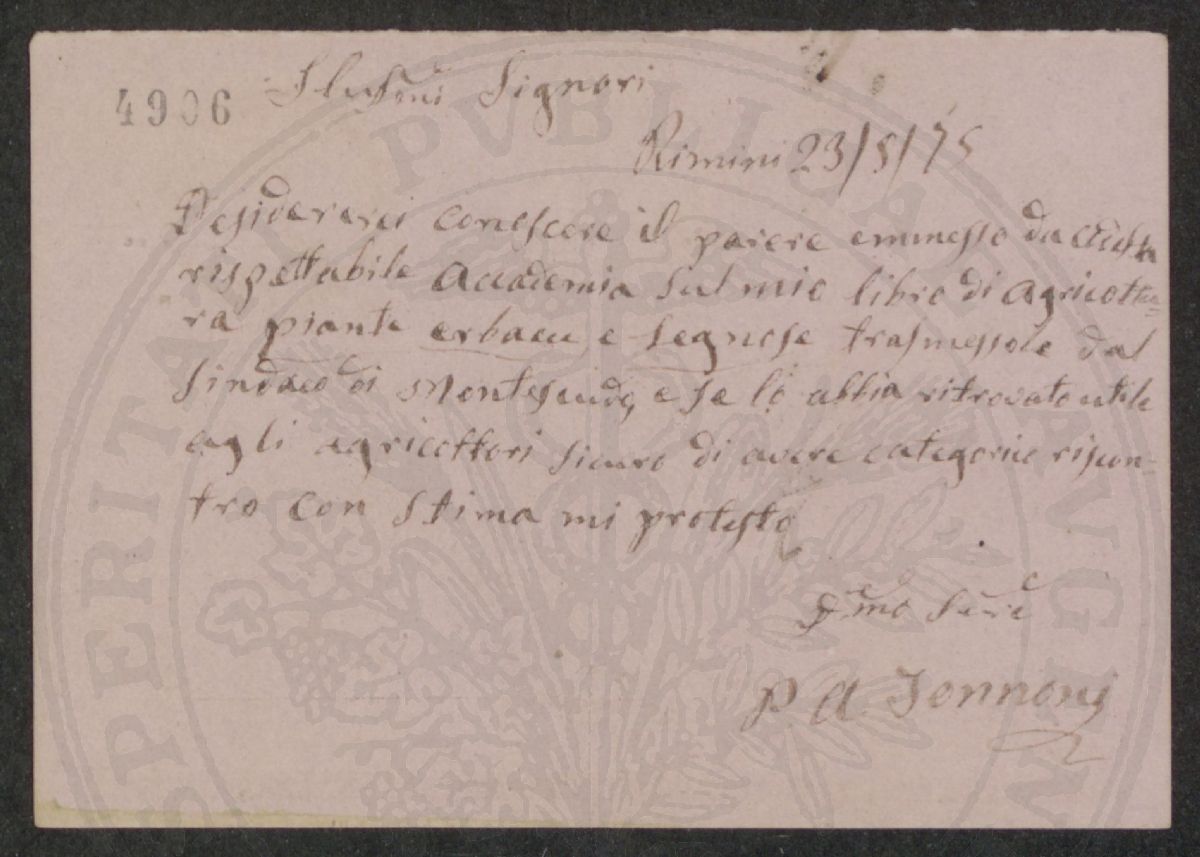 4906 Illustmi Signori
Rimini 23/5/75
Desidererei conoscere il parere emmesso da codesta
rispettabile Accademia sul mio libro di Agricottu=
ra piante erbacee e legnose trasmessole dal
Sindaco di Montescudo, e se lo abbia ritrovato utile
agli agricottori sicuro di avere categorico riscon-
tro con stima mi protesto
mo Serve
P A Jonnoni
PROSPERITATI PVBLICAE AVGEN